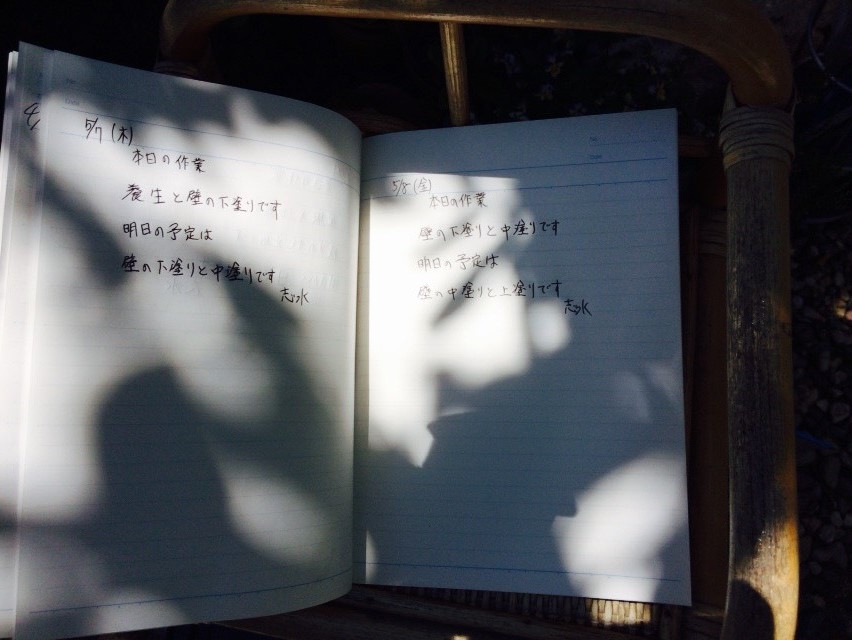 5/7 (木)
本日の作業
養生と壁の下塗りです
明日の予定は
壁の下塗りと中塗りです
志水
5/8 (金)
本日の作業
壁の下塗りと中塗りです
明日の予定は
壁の中塗りと上塗りです
志水